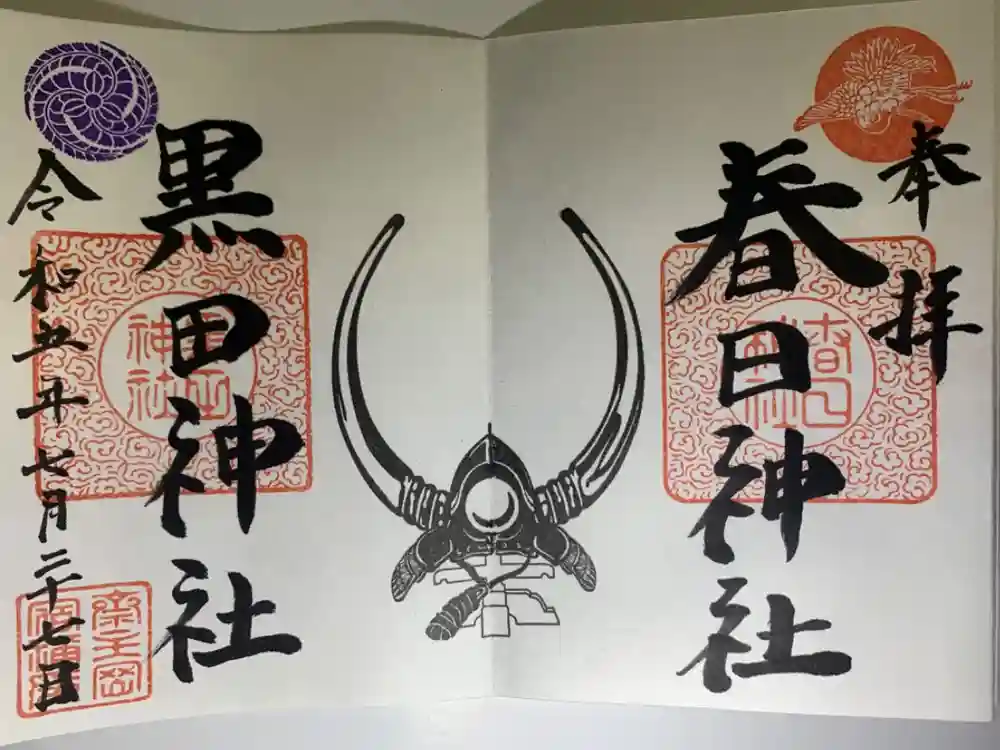 奉拝
春日神社
黒田神社
令和五年七月二十七日
神社